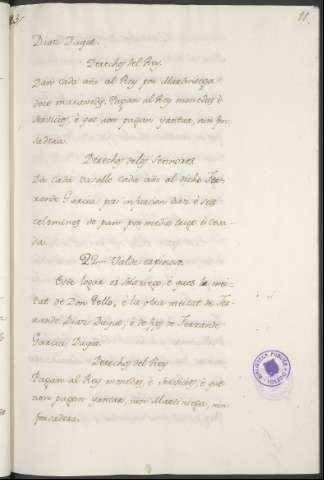 11.
Diaz Duque.
Derechos del Rey.
Dan cada año al Rey por Martiniega
doce maravedis. Pagan al Rey monedas é
servicios, é que non pagan yantar, nin fon
sadera.
Derechos de los Sennores
Da cada vasallo cada año al dicho Fer-
rande Garcia por infurcion dos é seis
celemines de pan por medio trigo é ceva-
da.
22.- Valde espinoso.
Este logar es Solariego, é que es la mei-
tat de Don Tello, é la otra meitat de Fer-
rande Diaz Duque, é de fijos de Ferrando
Garcia Duque.
Derechos del Rey
Pagan al Rey monedas, é servicios, é que
non pagan yantar, nin Martiniega, nin
fonsadera.
BIBLIOTECA PUBLICA
TOLEDO